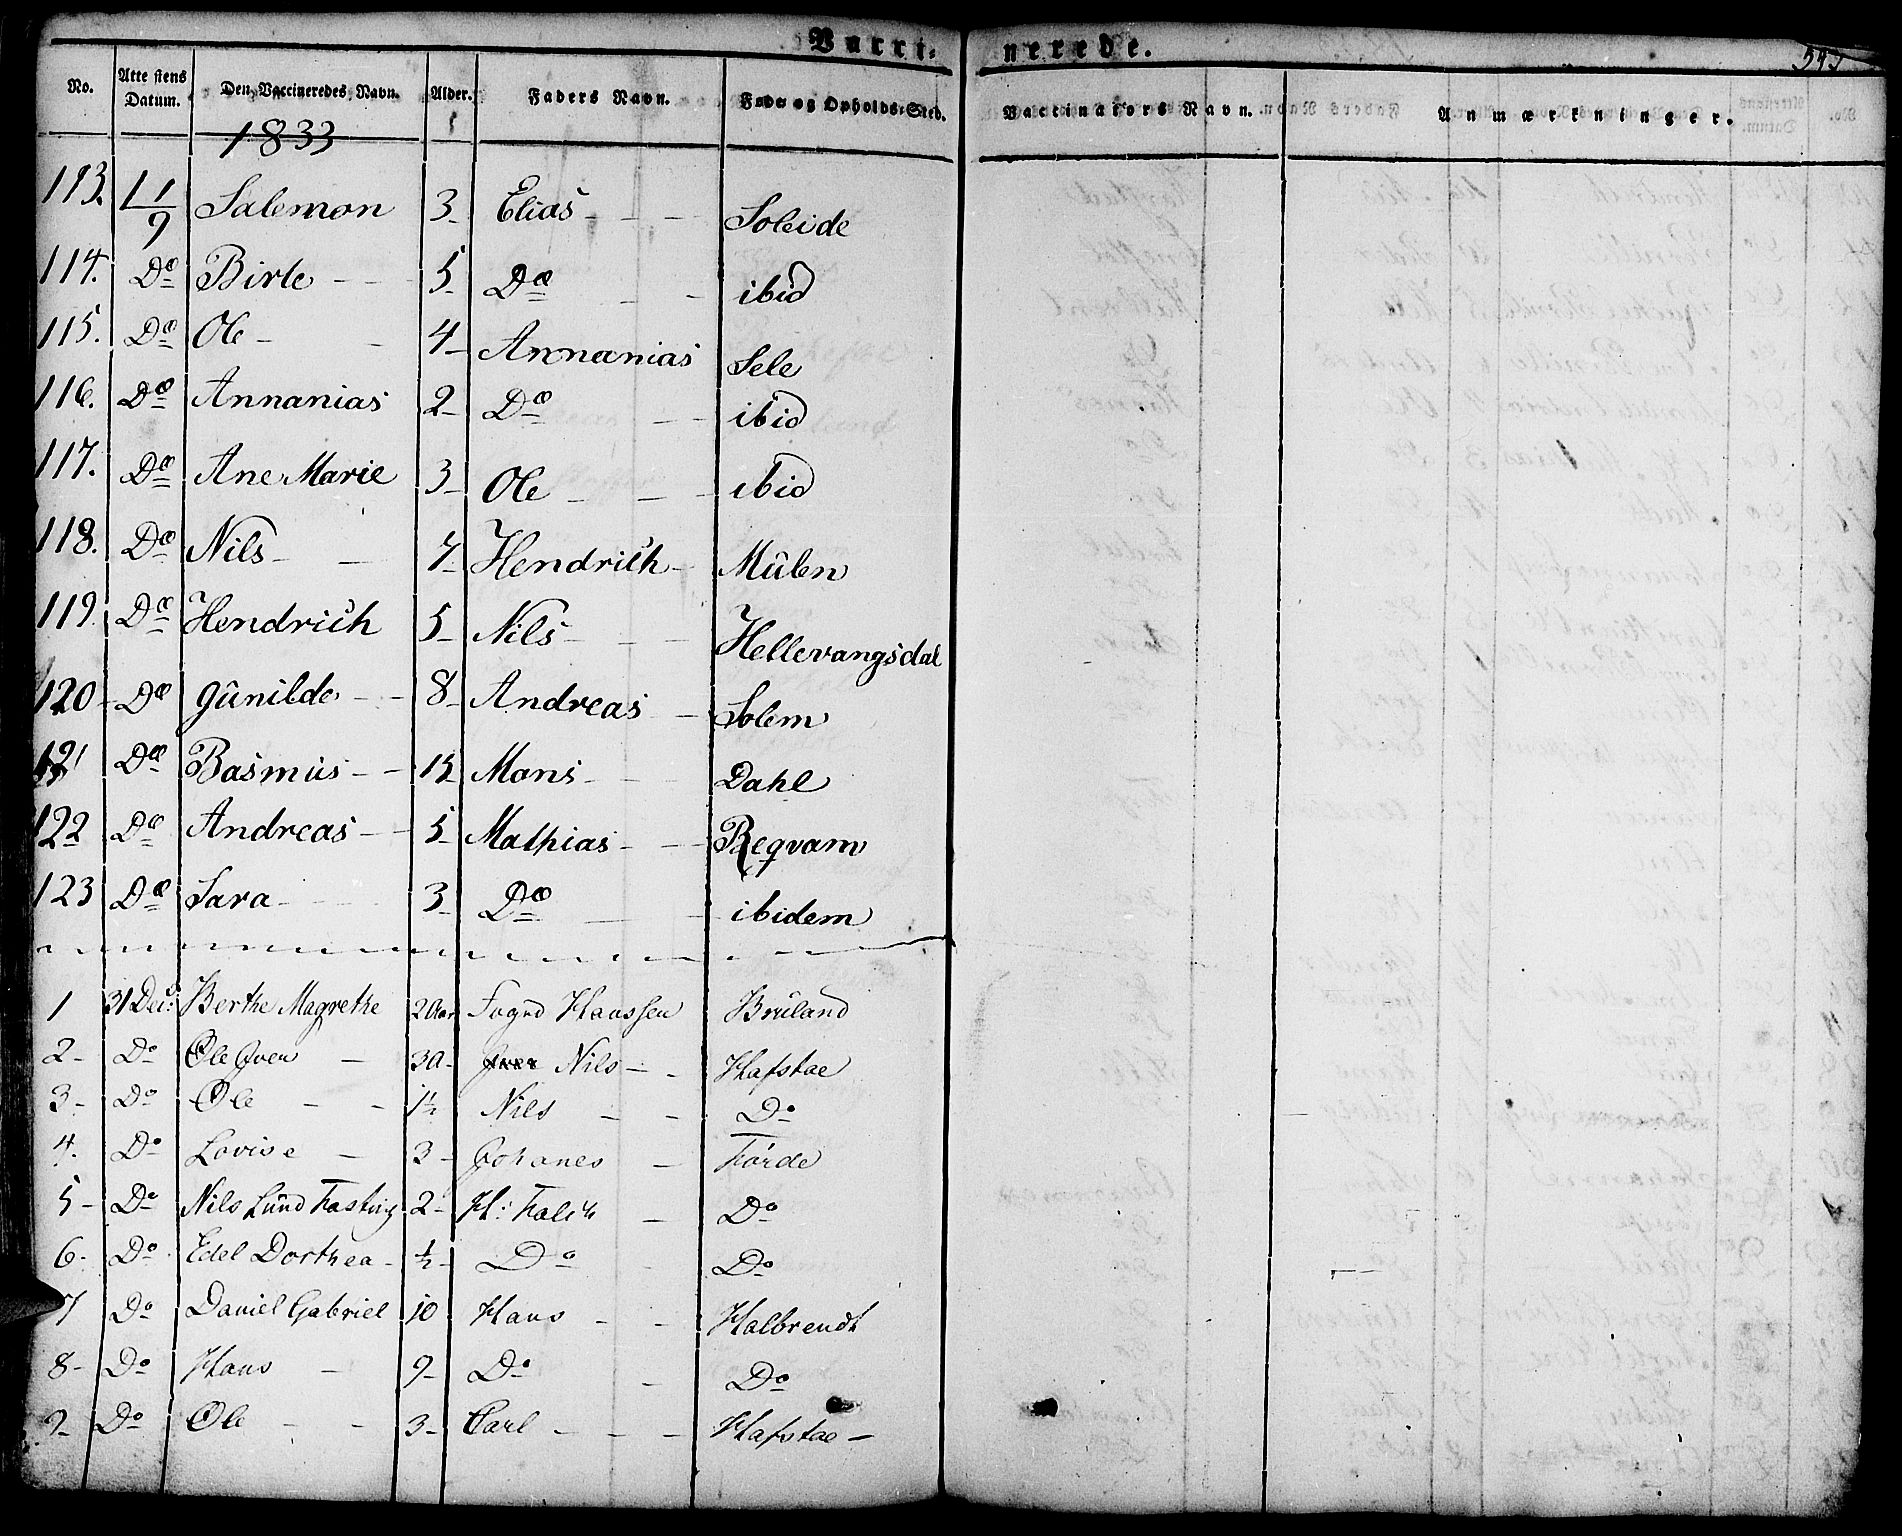 Vacci- nerede.
543
No. Atte stens Datum. Den Vaccineredes Navn. Alder. Faders Navn. Føde og Opholds-Sted. Vaccinators Navn. Anmærkninger.
1833
113. 11/9 Salemon 3- Elias - - - Soleide
114. Do Birte - - 5- Do - - ibid
115. Do Ole - - 4- Annanias Sele
116. Do Annanias 2- Do - - ibid
117. Do Ane Marie 3- Ole - - - ibid
118. Do Nils - - 7- Hendrich - Mûlen
119. Do Hendrich 5- Nils - - - Hellevangsdal
120 - Do Gûnilde - - 8- Andreas - Solem
121 Do Rasmus - - 15- Mons - - Dahl
122 Do Andreas - - 5- Mathias - - - Reqvam
123 Do Sara - - 3- Do - - ibidem
1 31 Dec: Berthe Magrethe 2 Aar Fogd Hanssen Brûland
2- Do Ole Iver - 3a- Iver Nils - - Hafstae
3- Do Ole - - 1½ Nils - - Do
4. Do Lovise - 3- Johanes - Førde
5- Do Nils Lûnd Fasting 2- H: Falch - Do
6- Do Edel Dorthea - ½- Do - Do
7 Do Daniel Gabriel 10 Hans - - Halbrendt
8- Do Hans - 9- Do - Do
9- Do Ole - - 3- Carl - - - Hafstae -